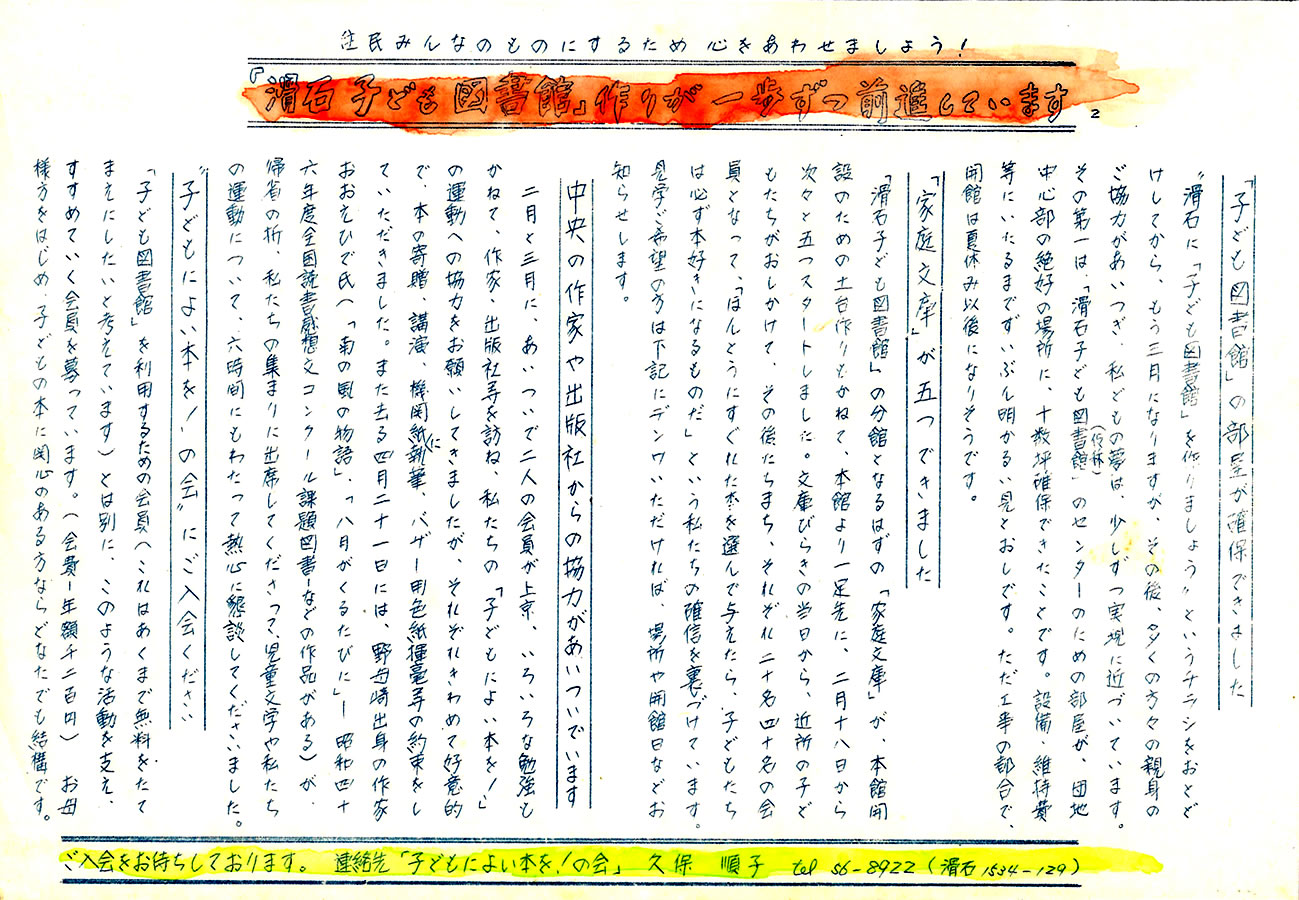 住民みんなのものにするため 心をあわせましょう！
『滑石子ども図書館』作りが一歩ずつ前進しています
2
「子ども図書館」の部屋が確保できました
〝滑石に「子ども図書館」を作りましょう〟というチラシをおとど
けしてから、もう三月になりますが、その後、多くの方々の親身の
ご協力があいつぎ、私どもの夢は、少しずつ実現に近づいています。
その第一は、「滑石子ども図書館(仮称)」のセンターのための部屋が、団地
中心部の絶好の場所に、十数坪確保できたことです。設備・維持費
等にいたるまでずいぶん明かるい見とおしです。ただ工事の都合で、
開館は夏休み以後になりそうです。
「家庭文庫」が五つできました
「滑石子ども図書館」の分館となるはずの「家庭文庫」が、本館開
設のための土台作りもかねて、本館より一足先に、二月十八日から
次々と五つスタートしました。文庫びらきの当日から、近所の子ど
もたちがおしかけて、その後たちまち、それぞれ二十名四十名の会
員となって、「ほんとうにすぐれた本を選んで与えたら、子どもたち
は必ず本好きになるものだ」という私たちの確信を裏づけています。
見学ご希望の方は下記にデンワいただければ、場所や開館日などお
知らせします。
中央の作家や出版社からの協力があいついでいます
二月と三月に、あいついで二人の会員が上京、いろいろな勉強も
かねて、作家、出版社等を訪ね、私たちの「子どもによい本を！」
の運動への協力をお願いしてきましたが、それぞれきわめて好意的
で、本の寄贈、講演、機関紙に執筆、バザー用色紙揮毫等の約束をし
ていただきました。また去る四月二十一日には、野母崎出身の作家
おおえひで氏（「南の風の物語」、「八月がくるたびに」ー昭和四十
六年度全国読書感想文コンクール課題図書ーなどの作品がある）が、
帰省の折、私たちの集まりに出席してくださって、児童文学や私たち
の運動について、六時間にもわたって熱心に懇談してくださいました。
〝子どもによい本を！の会〟にご入会ください
「子ども図書館」を利用するための会員（これはあくまで無料をたて
まえにしたいと考えています）とは別に、このような活動を支え、
すすめていく会員を募っています。（会費ー年額千二百円） お母
様方をはじめ、子どもの本に関心のある方ならどなたでも結構です。
ご入会をお待ちしております。 連絡先「子どもによい本を！の会」 久保 順子 tel 56-8922（滑石1534-129）